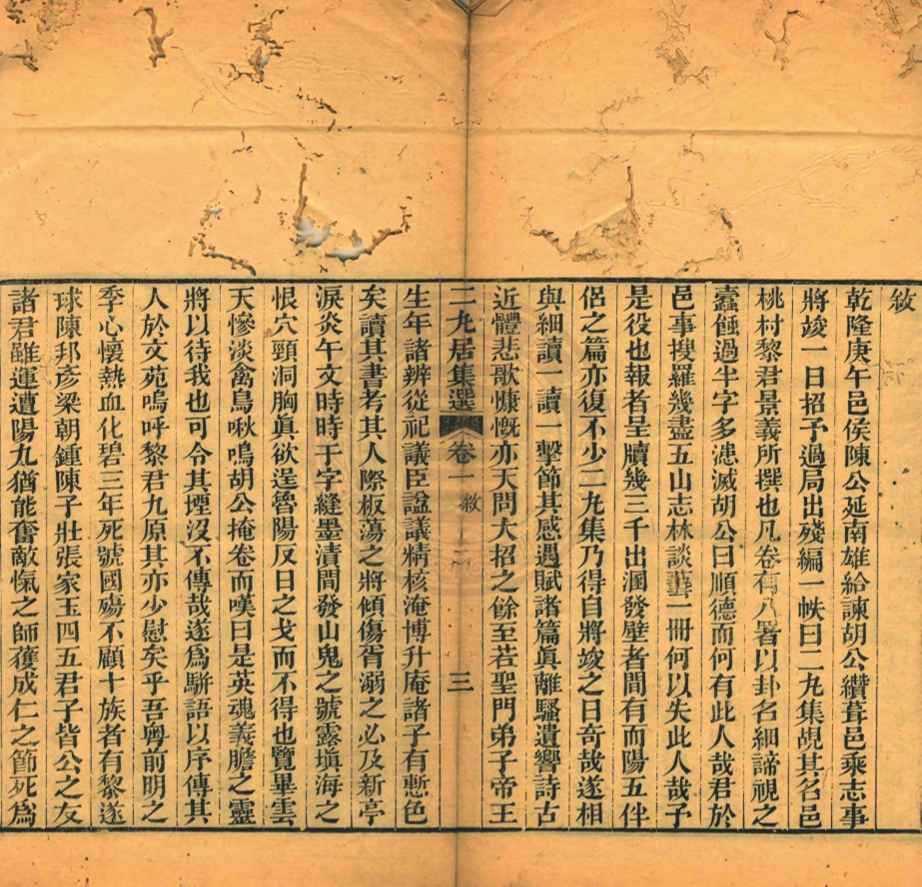 敘
乾隆庚午邑侯陳公延南雄給諫胡公纘葺邑乘志事
將竣一日招予過局出殘編一帙曰二九集覘其名邑
桃村黎君景義所撰也凡卷有八署以卦名細諦視之
蠹蝕過半字多漶滅胡公曰順德而何有此人哉君於
邑事搜羅幾盡五山志林談藝一冊何以失此人哉予
是役也報者呈牘幾三千出溷發壁者間有而陽五伴
侶之篇亦復不少二九集乃得自將竣之日奇哉遂相
與細讀一讀一擊節其感遇賦諸篇眞離騷遺響詩古
近體悲歌慷慨亦天問大招之餘至若聖門弟子帝王
二九居集選 卷一 敘 三
生年諸辨從祀議臣諡議精核淹博升庵諸子有慙色
矣讀其書考其人際板蕩之將傾傷胥溺之必及新亭
淚炎午文時時于字縫墨漬間發山鬼之號露塡海之
恨穴頸洞胸眞欲逞魯陽反日之戈而不得也覽畢雲
天慘淡禽鳥啾鳴胡公掩卷而嘆曰是英魂義膽之靈
將以待我也可令其堙沒不傳哉遂爲駢語以序傳其
人於文苑嗚呼黎君九原其亦少慰矣乎吾粵前明之
季心懷熱血化碧三年死號國殤不顧十族者有黎遂
球陳邦彥梁朝鍾陳子壯張家玉四五君子皆公之友
諸君雖運遭陽九猶能奮敵愾之師獲成仁之節死爲